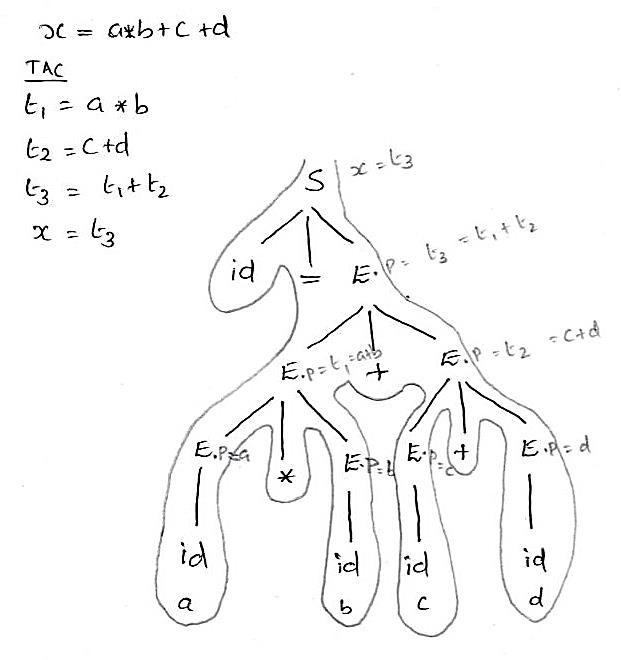 x = a*b+c+d
TAC
t₁ = a * b
t₂ = c+d
t₃ = t₁+t₂
x = t₃
S x = t₃
id = E.p = t₃ = t₁+t₂
E.p = t₁ = a*b + E.p = t₂ = c+d
E.p=a * E.p=b E.p=c + E.p=d
id id id id
a b c d